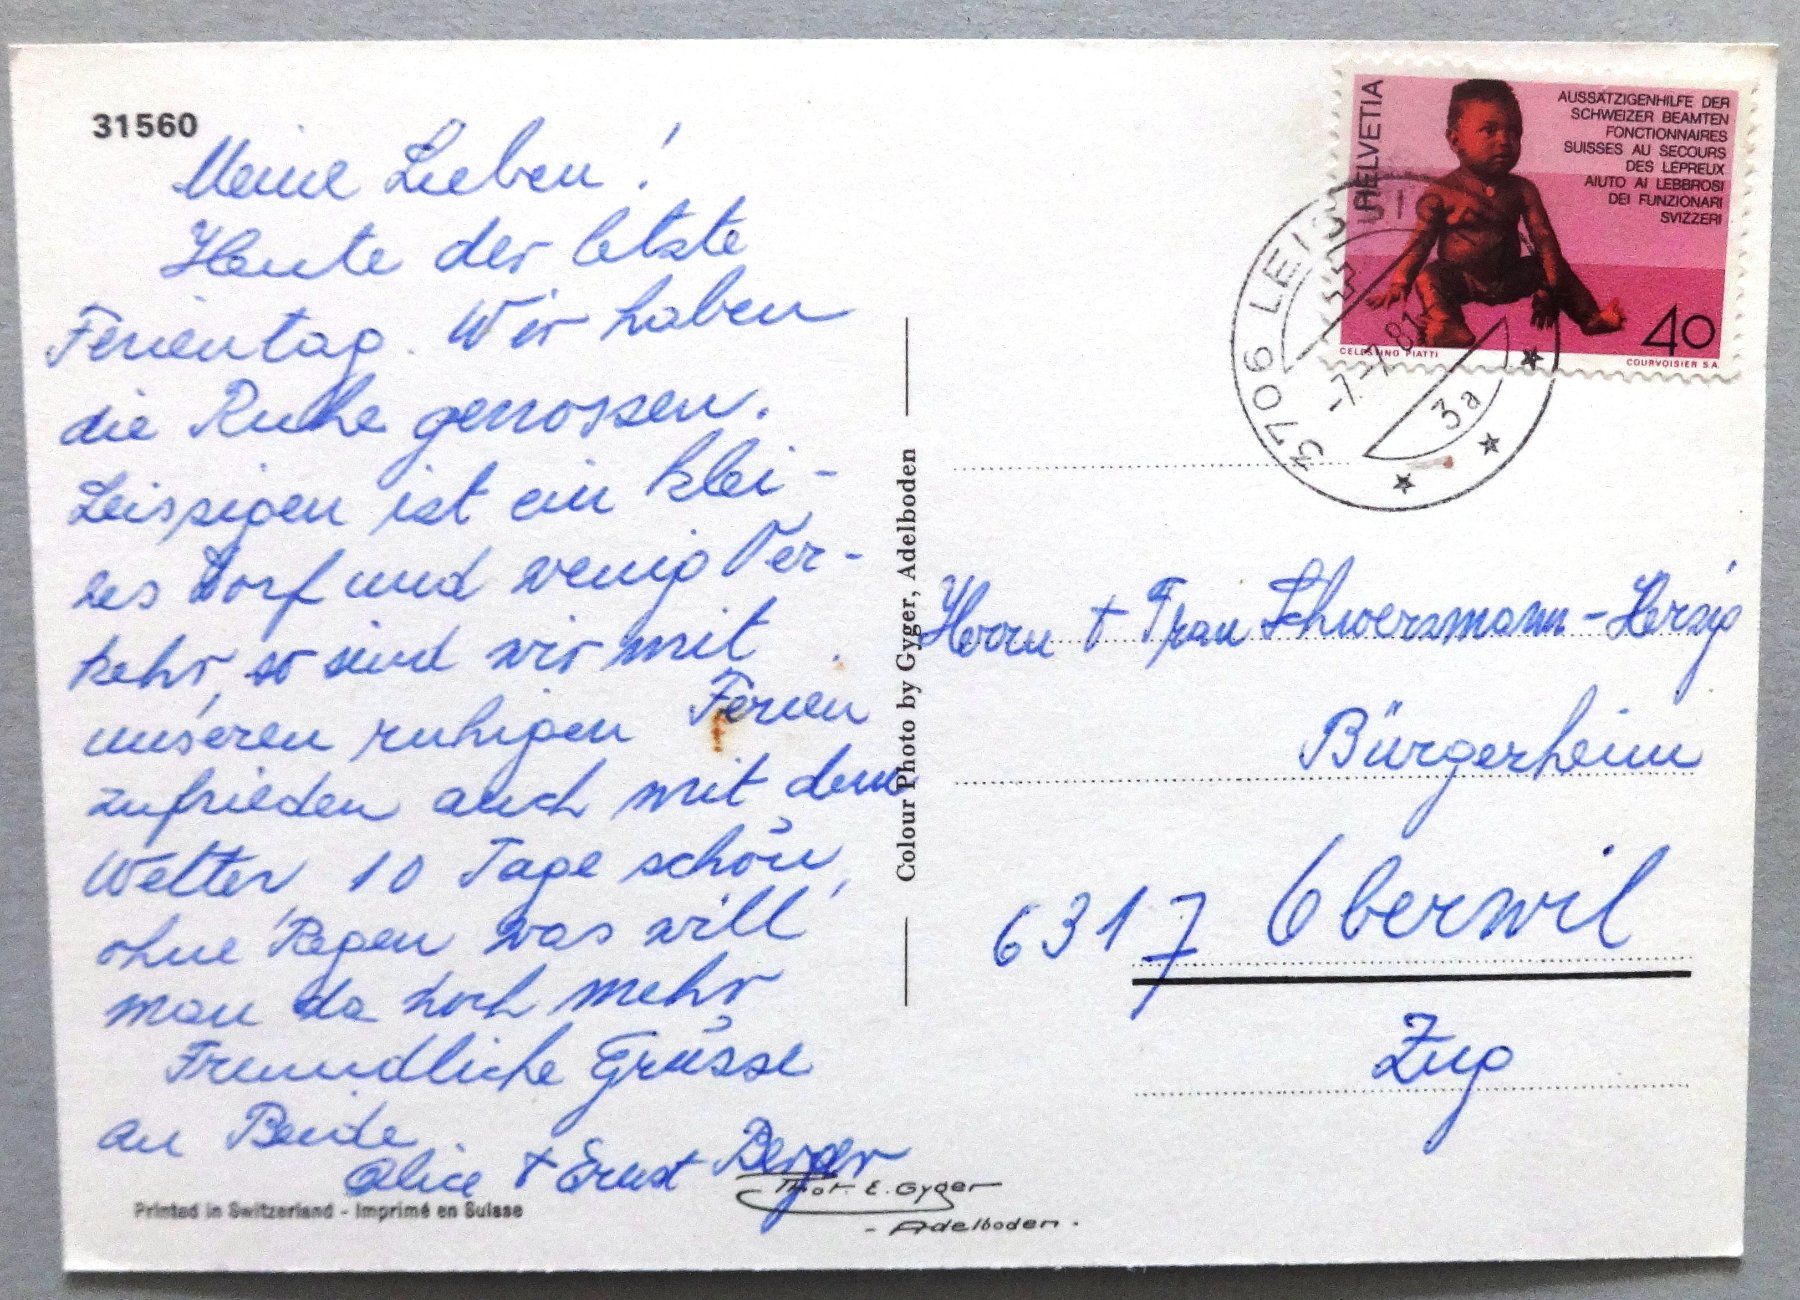 31560
Meine Lieben!
Heute der letzte
Ferientag. Wir haben
die Ruhe genossen.
Leissigen ist ein klei-
nes Dorf und wenig Ver-
kehr, so sind wir mit
unseren ruhigen Ferien
zufrieden auch mit dem
Wetter 10 Tage schön,
ohne Regen was will
man da noch mehr
Freundliche Grüsse
an Beide.
Alice + Ernst Berger
Printed in Switzerland - Imprimé en Suisse
Phot. E. Gyger
- Adelboden.
Colour Photo by Gyger, Adelboden
HELVETIA
AUSSÄTZIGENHILFE DER
SCHWEIZER BEAMTEN
FONCTIONNAIRES
SUISSES AU SECOURS
DES LÉPREUX
AIUTO AI LEBBROSI
DEI FUNZIONARI
SVIZZERI
40
CELESTINO PIATTI
COURVOISIER S.A.
3706
-7.-7.81
3a
Herrn + Frau Schwerzmann-Herzig
Bürgerheim
6317 Oberwil
Zug